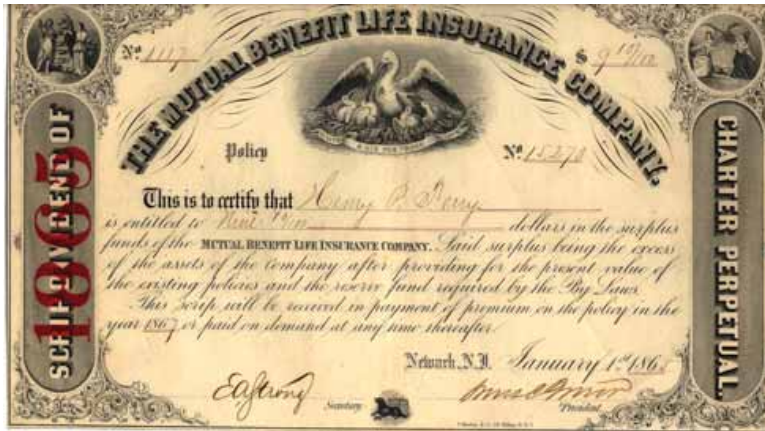 THE MUTUAL BENEFIT LIFE INSURANCE COMPANY.
No. 1117
$ 9 10/100
SCRIP DIVIDEND OF
1865
CHARTER PERPETUAL.
Policy No. 15270
This is to certify that Henry P.
is entitled to Nine 10/100 dollars in the surplus
funds of the MUTUAL BENEFIT LIFE INSURANCE COMPANY. Said surplus being the excess
of the assets of the company after providing for the present value of
the existing policies and the reserve fund required by the By Laws.
This scrip will be received in payment of premium on the policy in the
year 1867 or paid on demand at any time thereafter.
Newark, N.J. January 1st 1865
EA Strong
Secretary
President